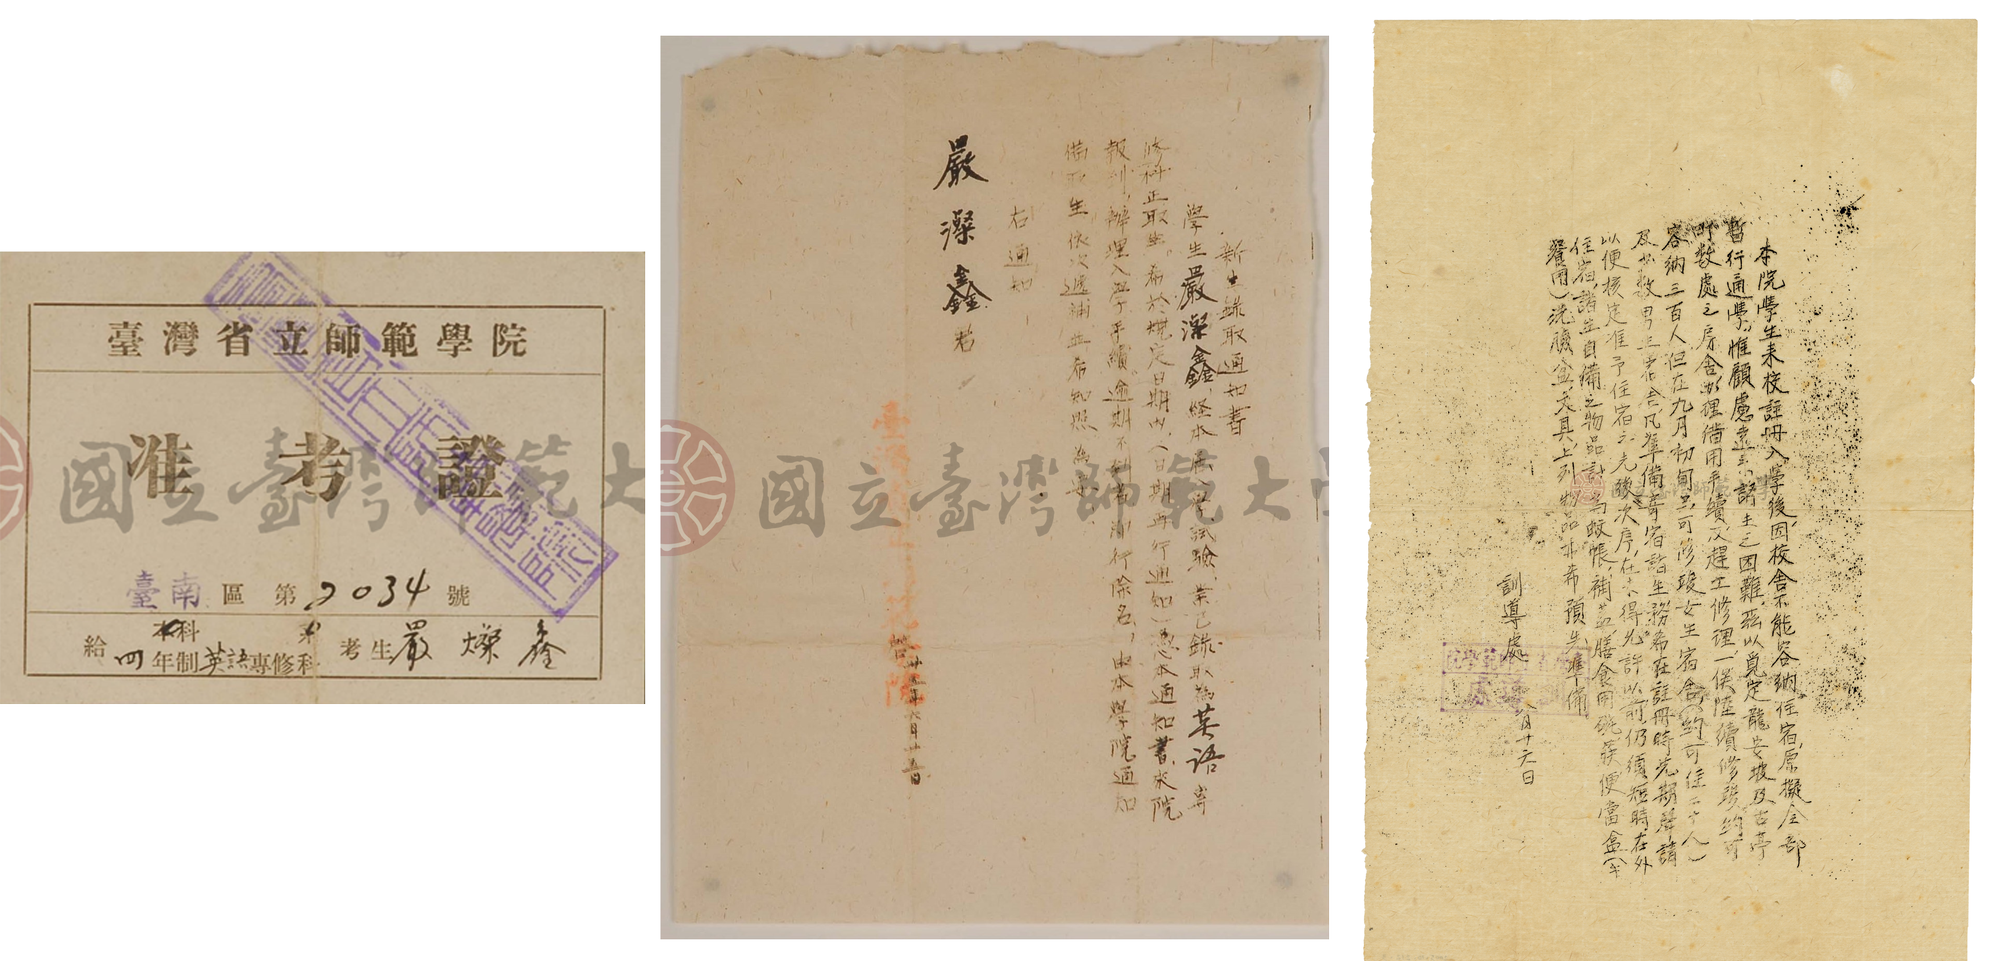 臺灣省立師範學院
准考證
臺南區第2034號
給
本科
四年制英語專修科
考生嚴燦鑫
國立臺灣師範大
新生錄取通知書
學生嚴溁鑫經本院入學試驗業已錄取為英語專
修科正取生。希於規定日期內（日期再行通知）憑本通知書來院
報到，辦理入學手續，逾期不到者，即行除名，由本學院通知
備取生依次遞補並希知照為要
右通知
嚴溁鑫君
國立臺灣師範大學
本院學生來校註冊入學後因校舍不能容納住宿原擬全部
暫行通學惟顧慮遠道諸生之困難茲以覓定龍安坡及古亭
町數處之房舍辦理借用手續及趕工修理一俟陸續修竣約可
容納三百人但在九月初旬只可修竣女生宿舍（約可住二十人）
及少數男生宿舍凡準備寄宿諸生務希在註冊時先期聲請
以便核定准予住宿之先後次序在未得允許以前仍須短時在外
住宿諸生自備之物品計為蚊帳被蓋膳食用碗筷便當盒（午
餐用）洗臉盆文具上列物品亦希預先準備
訓導處
八月十六日